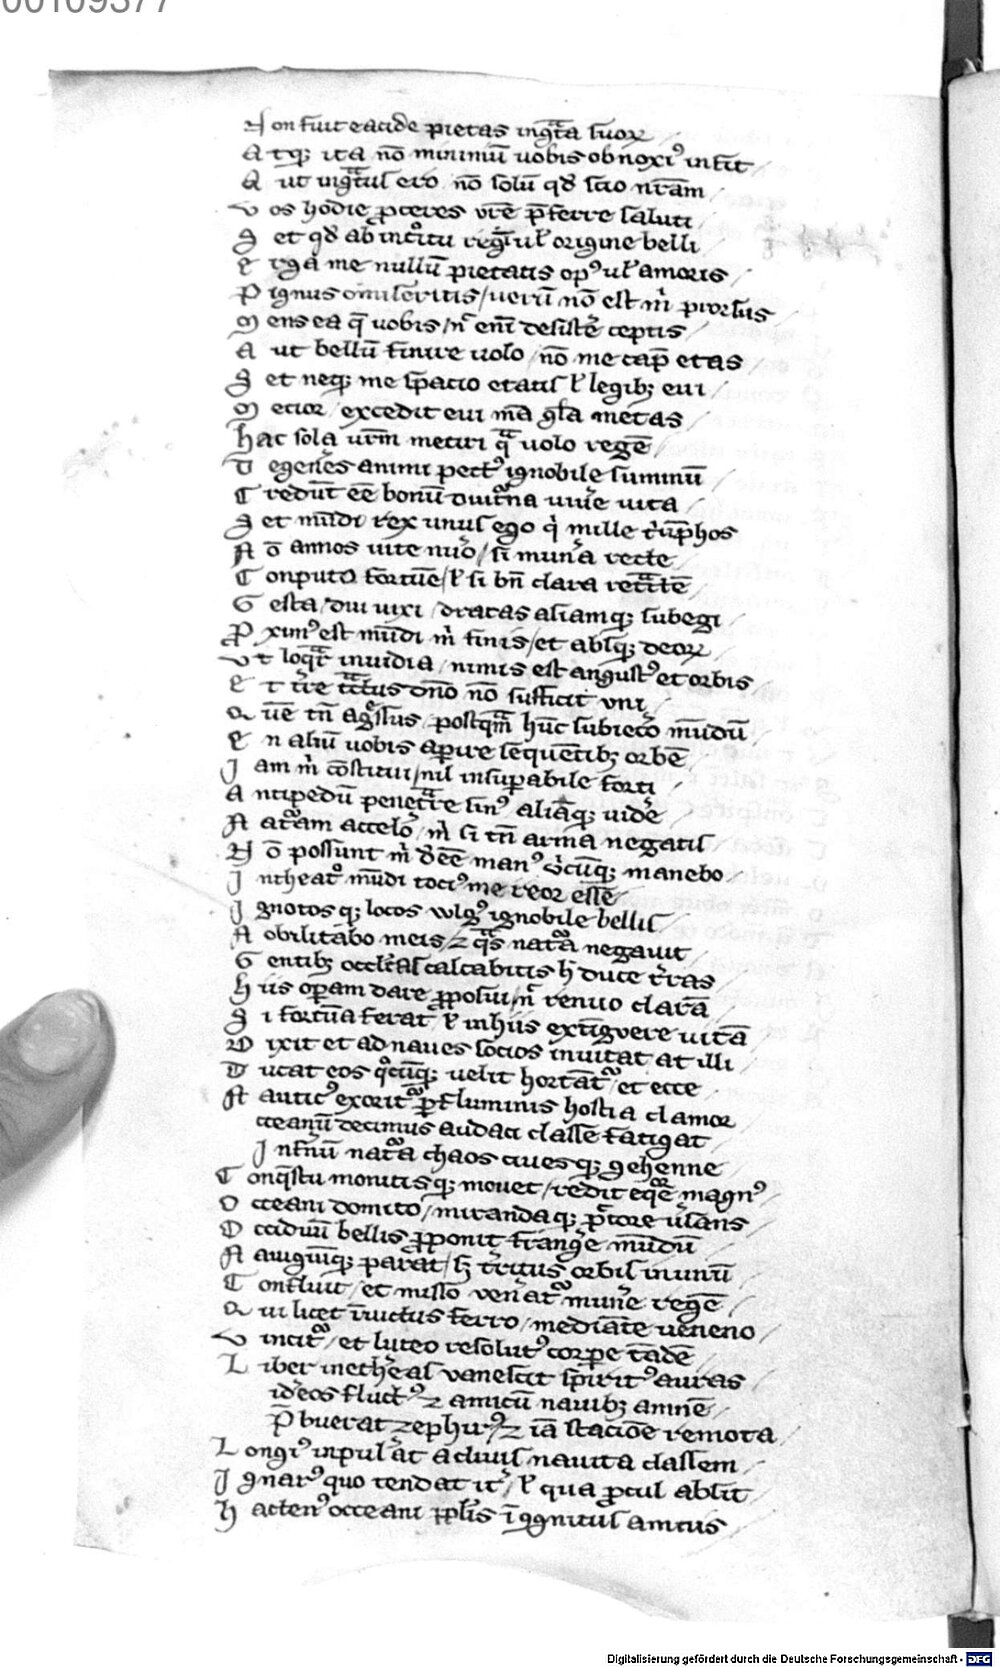 00109377
N on fuit eacide pietas ingͣta suoꝝ
A tqꝫ ita nō minimū uobis obnoxiꝰ inſtit
A ut ingͣtuſ ero nō ſolū qđ ſcio nr̄am
V os hodie ꝓceres vr̄e p̄ferre ſaluti
S et qđ ab intͦitu regͥ uł origine belli
E rga me nullū pietatis opꝰ uł amoris
P ignus omiſeritis / uerū nō eſt m̍ prorſus
M ens ea q̄ uobis / nͨ enī deſiſtē ceptis
A ut bellū finire uolo / nō me cap̄ etas
S et neqꝫ me ſpacio etatiſ ł legibꝫ eui
M ecior / excedit eui m̄a gl̄a metas
H ac ſola urm̄ metiri qͣ uolo regē
D egen̄es animi pectꝰ ignobile ſummū
C redūt eē bonū diut̾na uiue uita
S et mūdi rex unuſ ego q̍ mille t̍ūphos
N ō annos uite nūo / ſi mun̾a recte
C onputo fortūe / ł ſi bn̄ clara retͣctē
G eſta / diu uixi / dracas aſiamqꝫ ſubegi
P xim̾ eſt mūdi m̍ finis / et abſqꝫ deoꝝ
V t loqͣr inuidia / nimis eſt anguſtꝰ et orbis
E t tr̄e tͣctus dn̄o nō ſufficit vni
Q ūe tn̄ agͤſſus / poſtqͣm hūc ſubieco mūdū
E n aliū uobis aꝑire ſequētibꝫ orbē
I am m̍ cōſtitui / nil inſuꝑabile forti
A ntipedū penetͣre ſinꝰ aliāqꝫ uidē
N at̾am accelo / m̍ ſi tn̄ arma negatiſ
N ō poſſunt m̍ deeē manꝰ ꝙcūqꝫ manebo
I ntheatͦ mūdi tociꝰ me reor eſſe
I gnotos qꝫ locos vulgꝰ ignobile belliſ
N obilitabo meis / ⁊ qͣs natͣa negauit
G entibꝫ occlr̄aſ calcabitis h̍ duce t̾ras
H iis oꝑam dare ꝓpoſui / nͨ renuo clarā
S i fortūa ferat / ł in hiis extīgvere uitā
D ixit et ad naues ſocios inuitat at illi
D ucat eos qͦcūqꝫ uelit hortātͬ et ecce
N auticꝰ exoritͬ ꝑ fluminis hoſtia clamor
cceanū decimus audaci claſſe fatigat
I nfn̾ū natͣa chaos ciues qꝫ gehenne
C onqͣſtu monitis qꝫ mouet / redit eqͦꝫ magnꝰ
O cceani domito / mirandaqꝫ p̄tore uſans
O ccidūū bellis ꝓponit frangͤe mūdū
N auigiūqꝫ parat / ſꝫ t̾ritus orbiſ in unū
C onfluit / et miſſo ven̾atͬ mun̾e regē
Q ui licet īuictus ferro / mediāte ueneno
V incitͬ / et luteo reſolutꝰ corꝑe tādē
L iber inethe̾aſ vaneſcit ſpiritꝰ auras
ideos fluctꝰ ⁊ amicū nauibꝫ amnē
P̄buerat zephirꝰ ⁊ iā ſtacōe remota
L ongiꝰ inpulͤat acliuiſ nauita claſſem
I gnarꝰ quo tendat it̾ / ł qua ꝓcul abſit
H actenꝰ occeani ppl̄is īcognituſ amcus
Digitalisierung gefördert durch die Deutsche Forschungsgemeinschaft - DFG